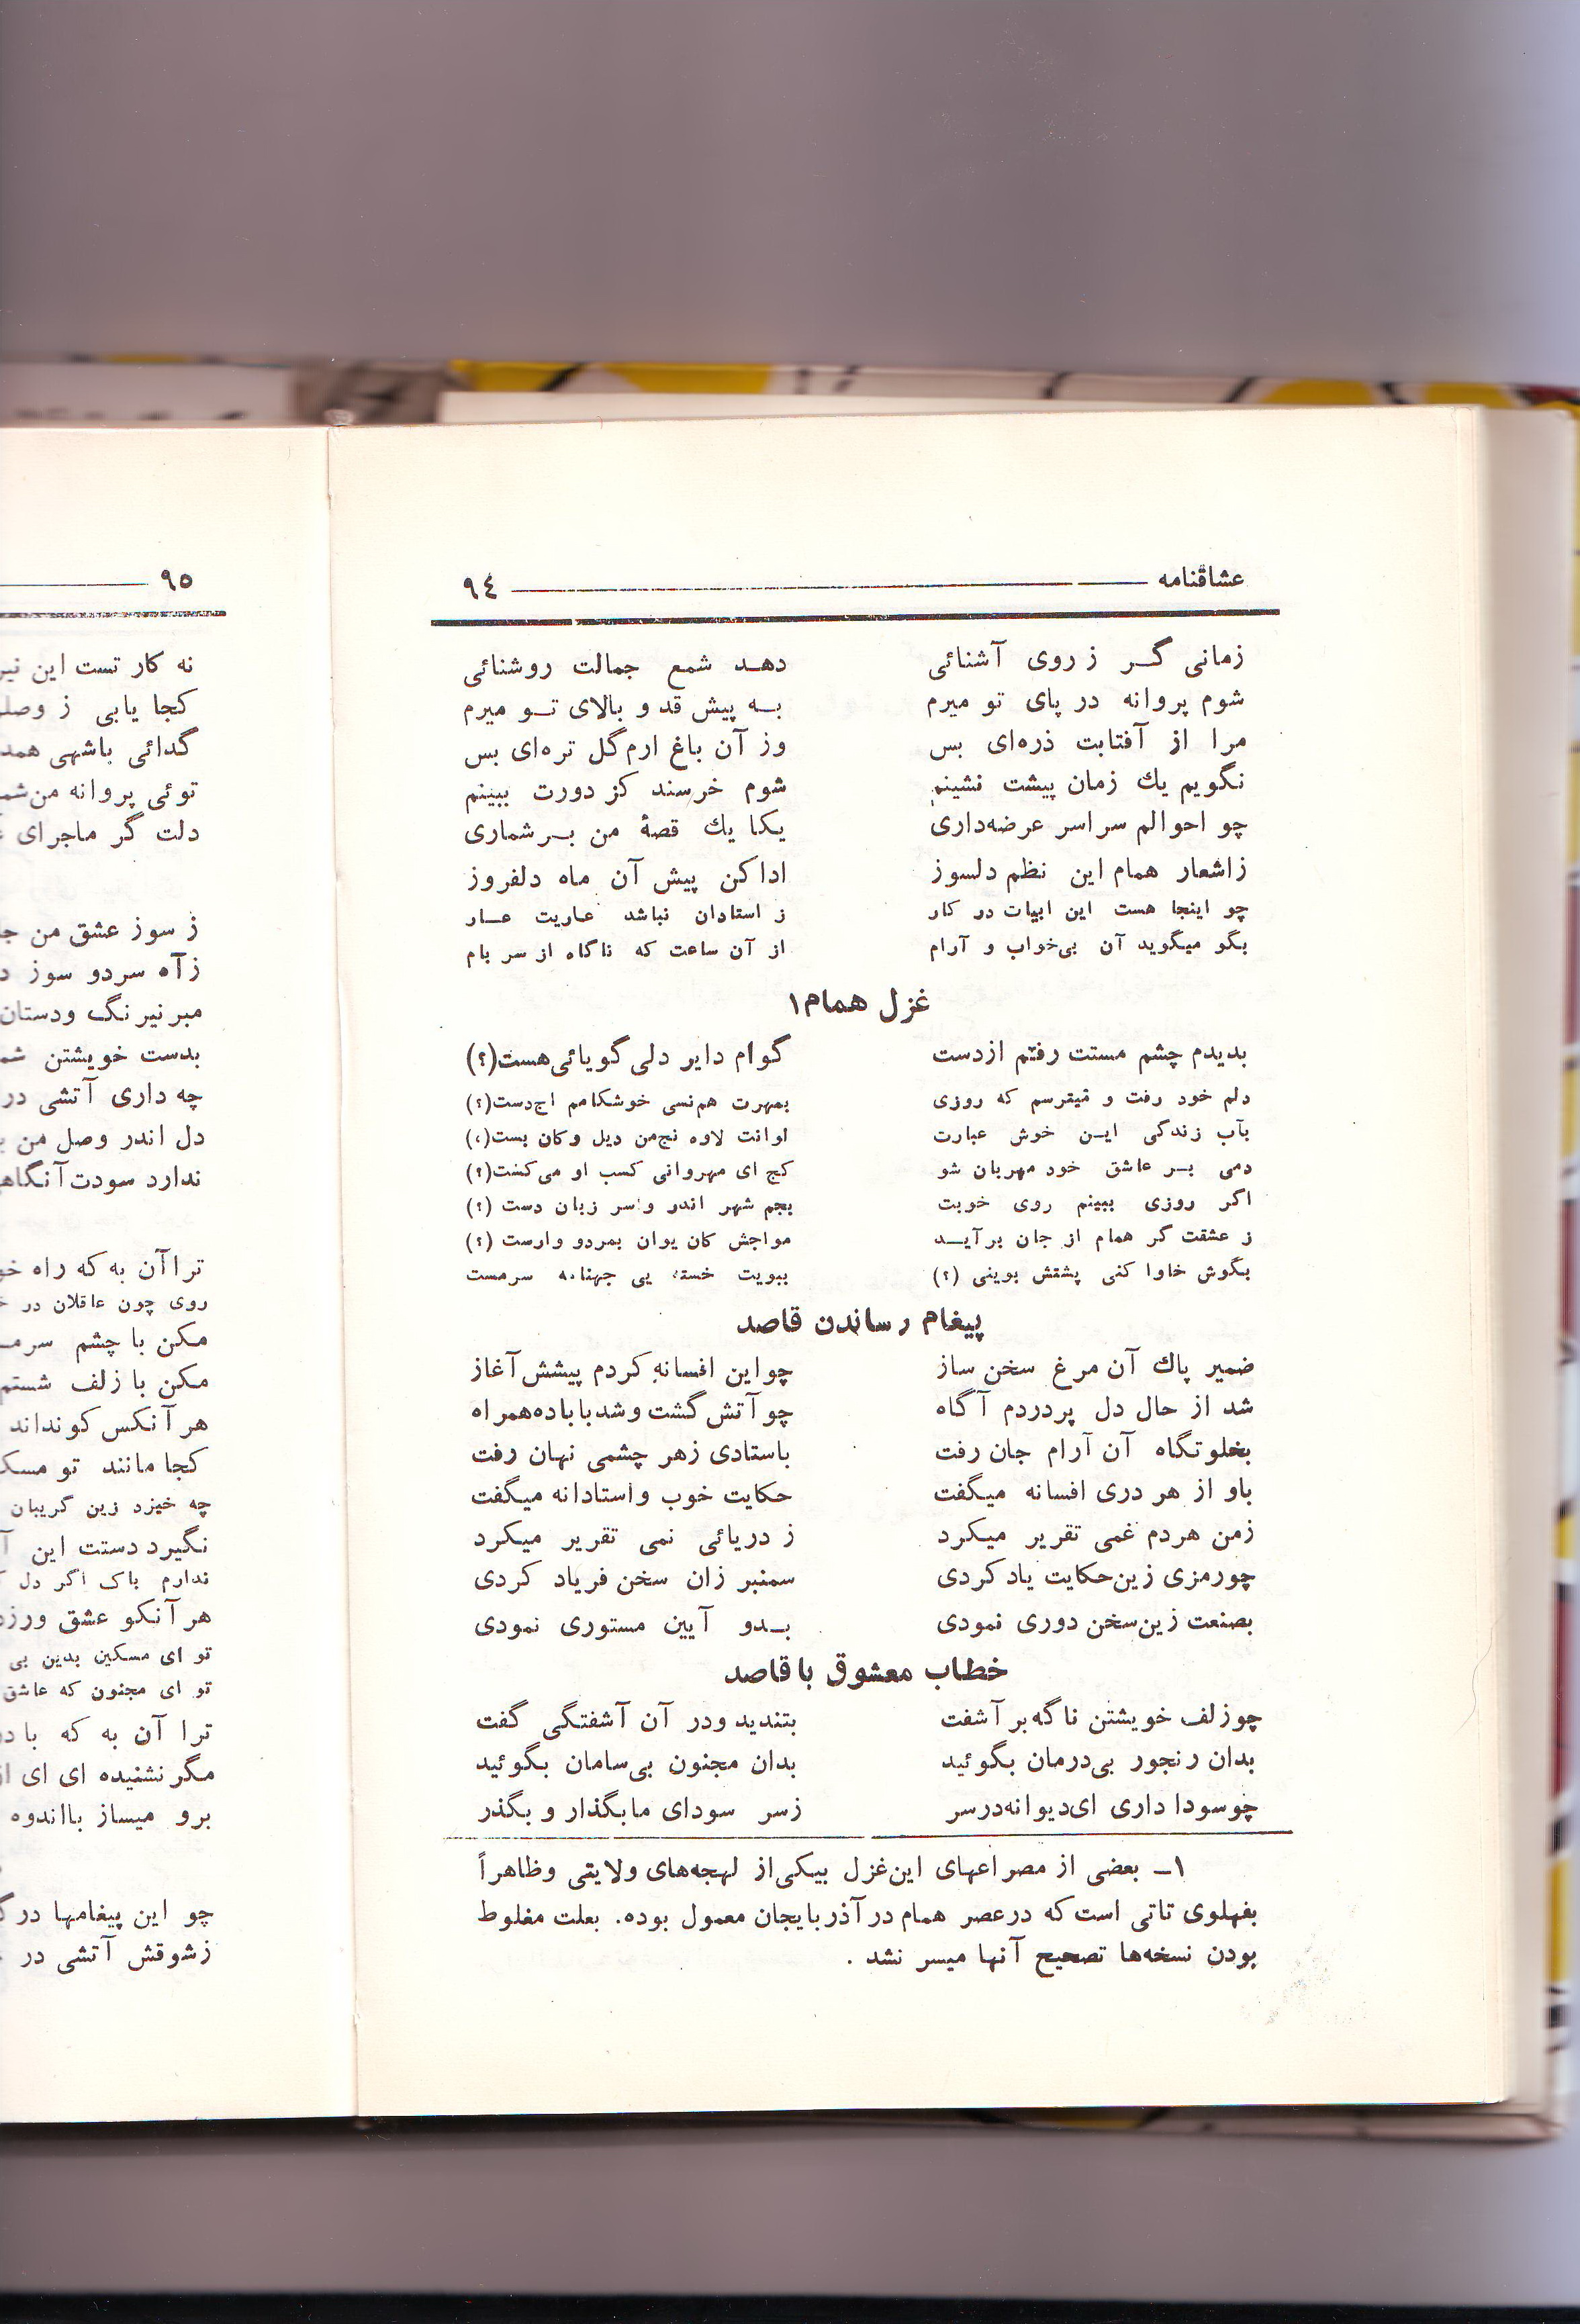 عشاقنامه ٩٤
زمانی گر ز روی آشنائی دهد شمع جمالت روشنائی
شوم پروانه در پای تو میرم به پیش قد و بالای تو میرم
مرا از آفتابت ذره‌ای بس وز آن باغ ارم گل تره‌ای بس
نگویم یك زمان پیشت نشینم شوم خرسند کز دورت ببینم
چو احوالم سراسر عرضه‌داری یکا یك قصهٔ من بر شماری
ز اشعار همام این نظم دلسوز ادا کن پیش آن ماه دلفروز
چو اینجا هست این ابیات در کار ز استادان نباشد عاریت عار
بگو میگوید آن بی‌خواب و آرام از آن ساعت که ناگاه از سر بام
غزل همام۱
بدیدم چشم مستت رفتم ازدست گوام دایر دلی گویائی هست(؟)
دلم خود رفت و میترسم که روزی بمهرت هم‌نسی خوشکامم اج‌دست(؟)
بآب زندگی این خوش عبارت اوانت لاوه نج‌من دیل وکان بست(؟)
دمی بر عاشق خود مهربان شو کج ای مهروانی کسب او می‌کشت(؟)
اگر روزی ببینم روی خوبت بجم شهر اندر واسر زبان دست (؟)
ز عشقت گر همام از جان برآید مواجش کان یوان بمردو وارست (؟)
بگوش خاوا کنی پشتش بوینی (؟) ببویت خسته بی جهنامه سرمست
پیغام رساندن قاصد
ضمیر پاك آن مرغ سخن ساز چو این افسانه کردم پیشش آغاز
شد از حال دل پردردم آگاه چو آتش گشت و شد با باده همراه
بخلوتگاه آن آرام جان رفت باستادی زهر چشمی نهان رفت
باو از هر دری افسانه میگفت حکایت خوب و استادانه میگفت
زمن هردم غمی تقریر میکرد ز دریائی نمی تقریر میکرد
چورمزی زین حکایت یاد کردی سمنبر زان سخن فریاد کردی
بصنعت زین سخن دوری نمودی بدو آیین مستوری نمودی
خطاب معشوق با قاصد
چوزلف خویشتن ناگه بر آشفت بتندید ودر آن آشفتگی گفت
بدان رنجور بی‌درمان بگوئید بدان مجنون بی‌سامان بگوئید
چوسودا داری ای‌دیوانه‌درسر زسر سودای مابگذار و بگذر
۱ـ بعضی از مصراعهای این‌غزل بیکی‌از لهجه‌های ولایتی وظاهراً
بفهلوی تاتی است که درعصر همام در آذربایجان معمول بوده. بعلت مغلوط
بودن نسخه‌ها تصحیح آنها میسر نشد .
٩٥
نه کار تست این
کجا یابی ز
گدائی باشهی
توئی پروانه من
دلت گر ماجرای
ز سوز عشق من
ز آه سردو سوز
مبر نیرنگ ودستان
بدست خویشتن
چه داری آتشی در
دل اندر وصل من
ندارد سودت
تراآن به که راه
روی چون عاقلان در
مکن با چشم
مکن با زلف
هر آنکس کونداند
کجا مانند تو
چه خیزد زین گریبان
نگیرد دستت این
ندارم باك اگر دل
هر آنکو عشق
تو ای مسکین بدین بی
تو ای مجنون که عاشق
ترا آن به که
مگر نشنیده ای ای
برو میساز بااندوه
چو این پیغامها در
زشوقش آتشی در